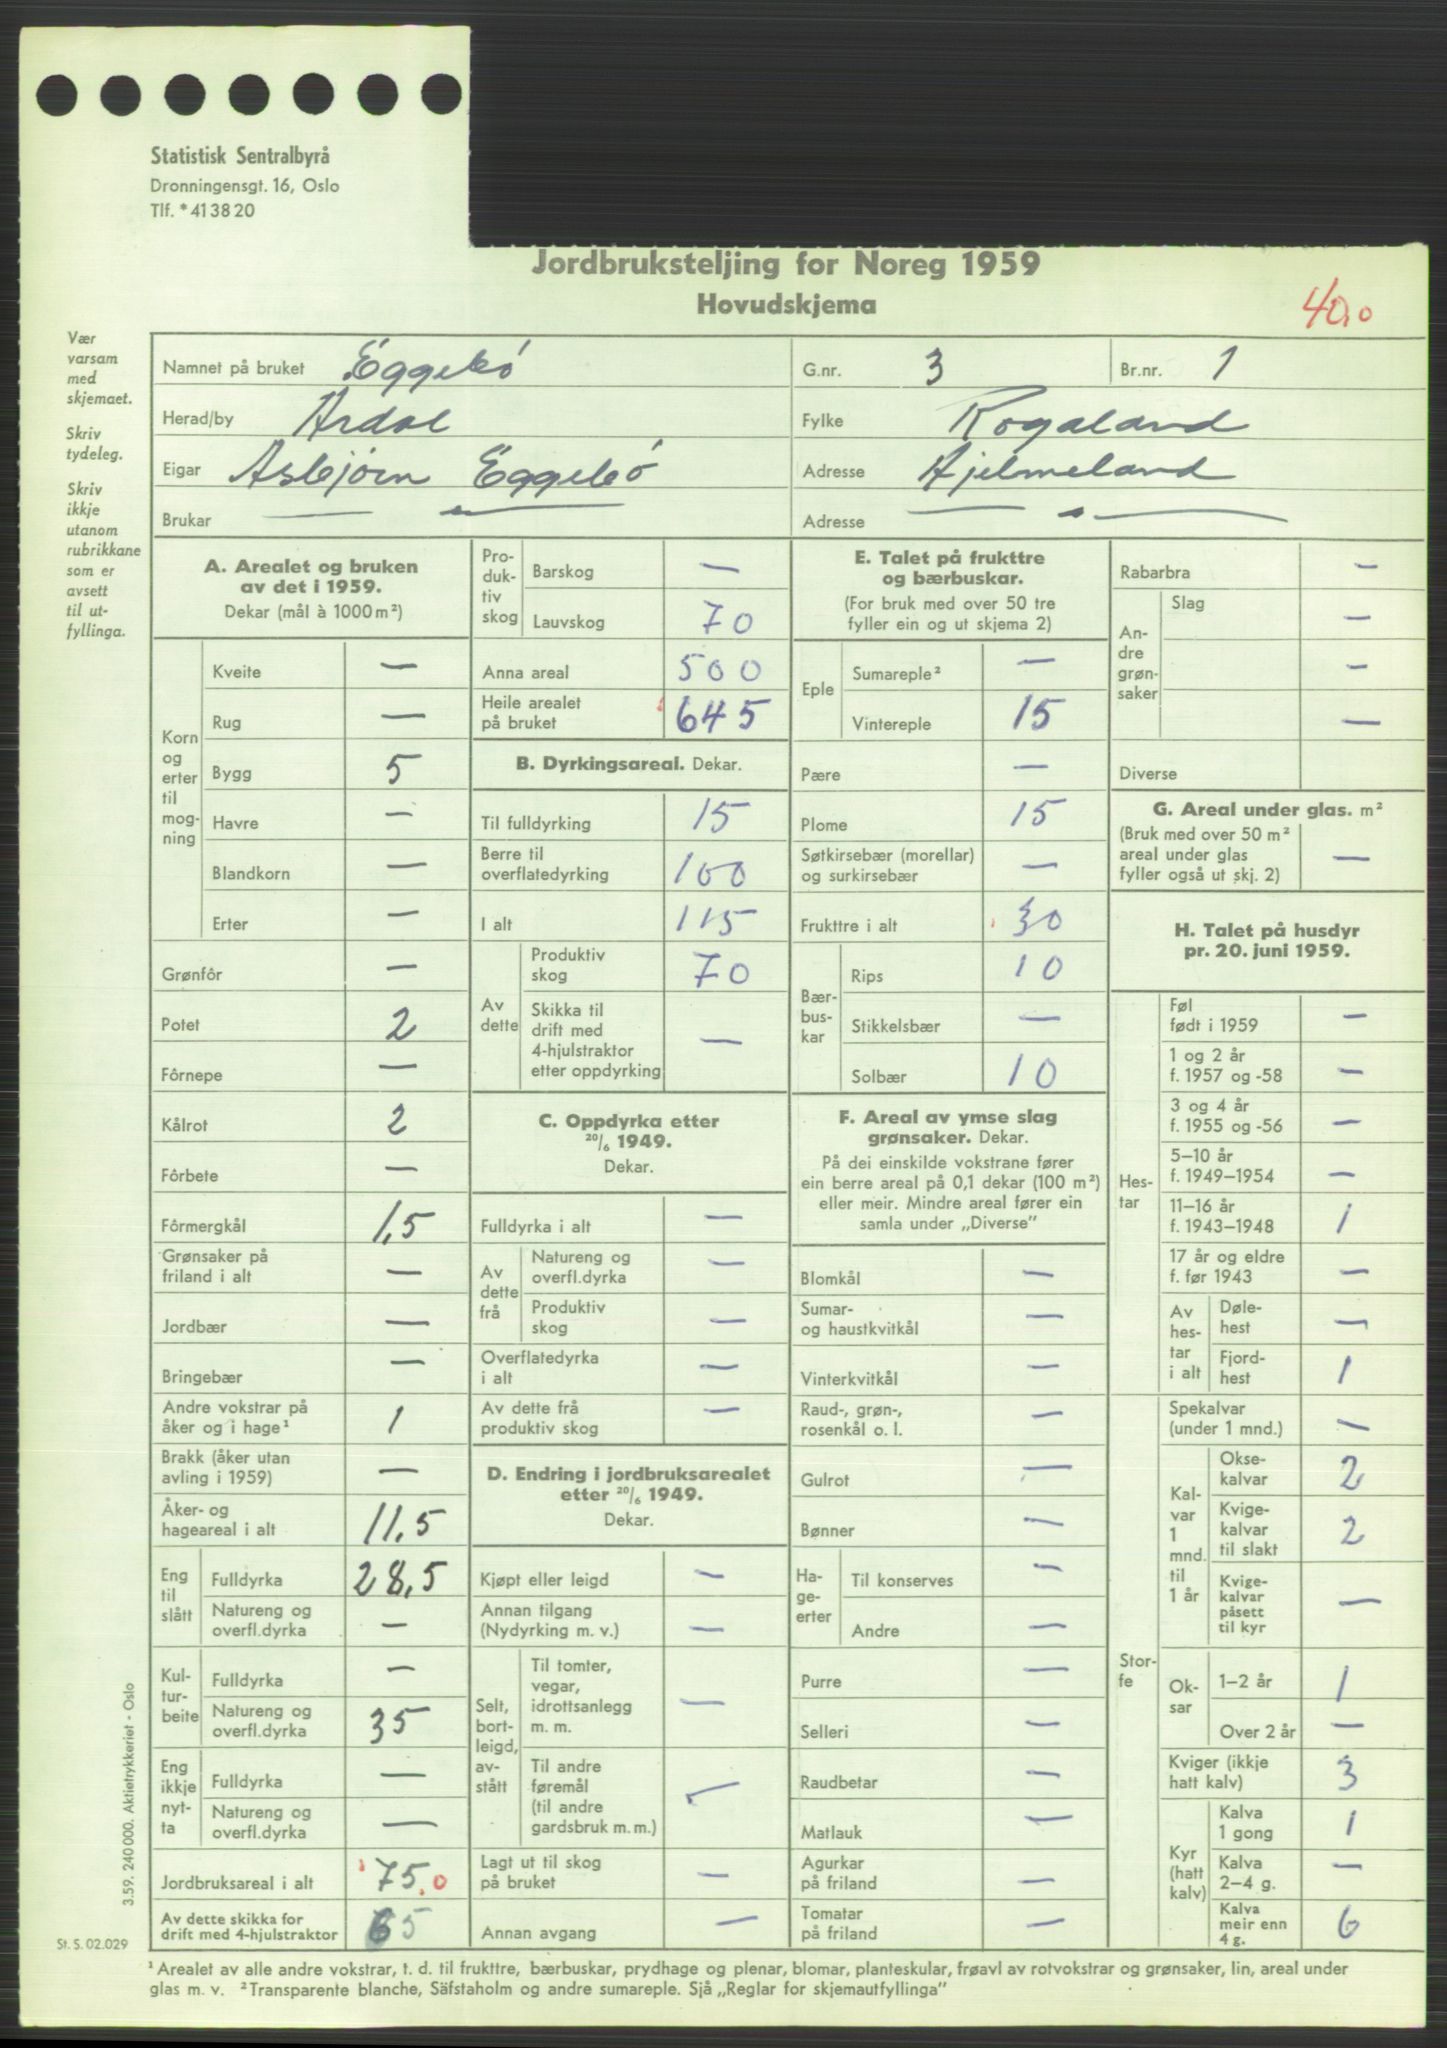 Statistisk Sentralbyrå
Dronningensgt. 16, Oslo
Tlf. *413820
Jordbruksteljing for Noreg 1959
Hovudskjema
40,0
Vær
varsam
med
skjemaet.
Skriv
tydeleg.
Skriv
ikkje
utanom
rubrikkane
som er
avsett
til ut-
fyllinga.
Namnet på bruket Eggebö G.nr. 3 Br.nr. 1
Herad/by Årdal Fylke Rogaland
Eigar Asbjörn Eggebö Adresse Hjelmeland
Brukar — " — Adresse — " —
A. Arealet og bruken
av det i 1959.
Dekar (mål à 1000 m²)
Korn
og
erter
til
mog-
ning
Kveite —
Rug —
Bygg 5
Havre —
Blandkorn —
Erter —
Grønfôr —
Potet 2
Fôrnepe —
Kålrot 2
Fôrbete —
Fôrmergkål 1,5
Grønsaker på
friland i alt —
Jordbær —
Bringebær —
Andre vokstrar på
åker og i hage¹ 1
Brakk (åker utan
avling i 1959) —
Åker- og
hageareal i alt 11,5
Eng
til
slått
Fulldyrka 28,5
Natureng og
overfl.dyrka —
Kul-
tur-
beite
Fulldyrka —
Natureng og
overfl.dyrka 35
Eng
ikkje
nyt-
ta
Fulldyrka —
Natureng og
overfl.dyrka —
Jordbruksareal i alt 75,0
Av dette skikka for
drift med 4-hjulstraktor 65
Pro-
duk-
tiv
skog
Barskog —
Lauvskog 70
Anna areal 500
Heile arealet
på bruket 645
B. Dyrkingsareal. Dekar.
Til fulldyrking 15
Berre til
overflatedyrking 100
I alt 115
Av
dette
Produktiv
skog 70
Skikka til
drift med
4-hjulstraktor
etter oppdyrking —
C. Oppdyrka etter
20/6 1949.
Dekar.
Fulldyrka i alt —
Av
dette
frå
Natureng og
overfl.dyrka —
Produktiv
skog —
Overflatedyrka
i alt —
Av dette frå
produktiv skog —
D. Endring i jordbruksarealet
etter 20/6 1949.
Dekar.
Kjøpt eller leigd —
Annan tilgang
(Nydyrking m. v.) —
Selt,
bort-
leigd,
av-
stått
Til tomter,
vegar,
idrottsanlegg
m. m. —
Til andre
føremål
(til andre
gardsbruk m. m.) —
Lagt ut til skog
på bruket —
Annan avgang —
E. Talet på frukttre
og bærbuskar.
(For bruk med over 50 tre
fyller ein og ut skjema 2)
Eple
Sumareple² —
Vintereple 15
Pære —
Plome 15
Søtkirsebær (morellar)
og surkirsebær —
Frukttre i alt 30
Bær-
bus-
kar
Rips 10
Stikkelsbær —
Solbær 10
F. Areal av ymse slag
grønsaker. Dekar.
På dei einskilde vokstrane fører
ein berre areal på 0,1 dekar (100 m²)
eller meir. Mindre areal fører ein
samla under „Diverse”
Blomkål —
Sumar-
og haustkvitkål —
Vinterkvitkål —
Raud-, grøn-,
rosenkål o. l. —
Gulrot —
Bønner —
Ha-
ge-
erter
Til konserves —
Andre —
Purre —
Selleri —
Raudbetar —
Matlauk —
Agurkar
på friland —
Tomatar
på friland —
Rabarbra —
An-
dre
grøn-
saker
Slag —
—
—
Diverse
G. Areal under glas. m²
(Bruk med over 50 m²
areal under glas
fyller også ut skj. 2) —
H. Talet på husdyr
pr. 20. juni 1959.
Hes-
tar
Føl
født i 1959 —
1 og 2 år
f. 1957 og -58 —
3 og 4 år
f. 1955 og -56 —
5–10 år
f. 1949–1954 —
11–16 år
f. 1943–1948 1
17 år og eldre
f. før 1943 —
Av
hes-
tar
i alt
Døle-
hest —
Fjord-
hest 1
Stor-
fe
Spekalvar
(under 1 mnd.) —
Kal-
var
1
mnd.
til
1 år
Okse-
kalvar 2
Kvige-
kalvar
til slakt 2
Kvige-
kalvar
påsett
til kyr —
Ok-
sar
1–2 år 1
Over 2 år —
Kviger (ikkje
hatt kalv) 3
Kyr
(hatt
kalv)
Kalva
1 gong 1
Kalva
2–4 g. —
Kalva
meir enn
4 g. 6
3.59. 240 000. Aktietrykkeriet - Oslo
St. S. 02.029
¹ Arealet av alle andre vokstrar, t. d. til frukttre, bærbuskar, prydhage og plenar, blomar, planteskular, frøavl av rotvokstrar og grønsaker, lin, areal under
glas m. v. ² Transparente blanche, Säfstaholm og andre sumareple. Sjå „Reglar for skjemautfyllinga”